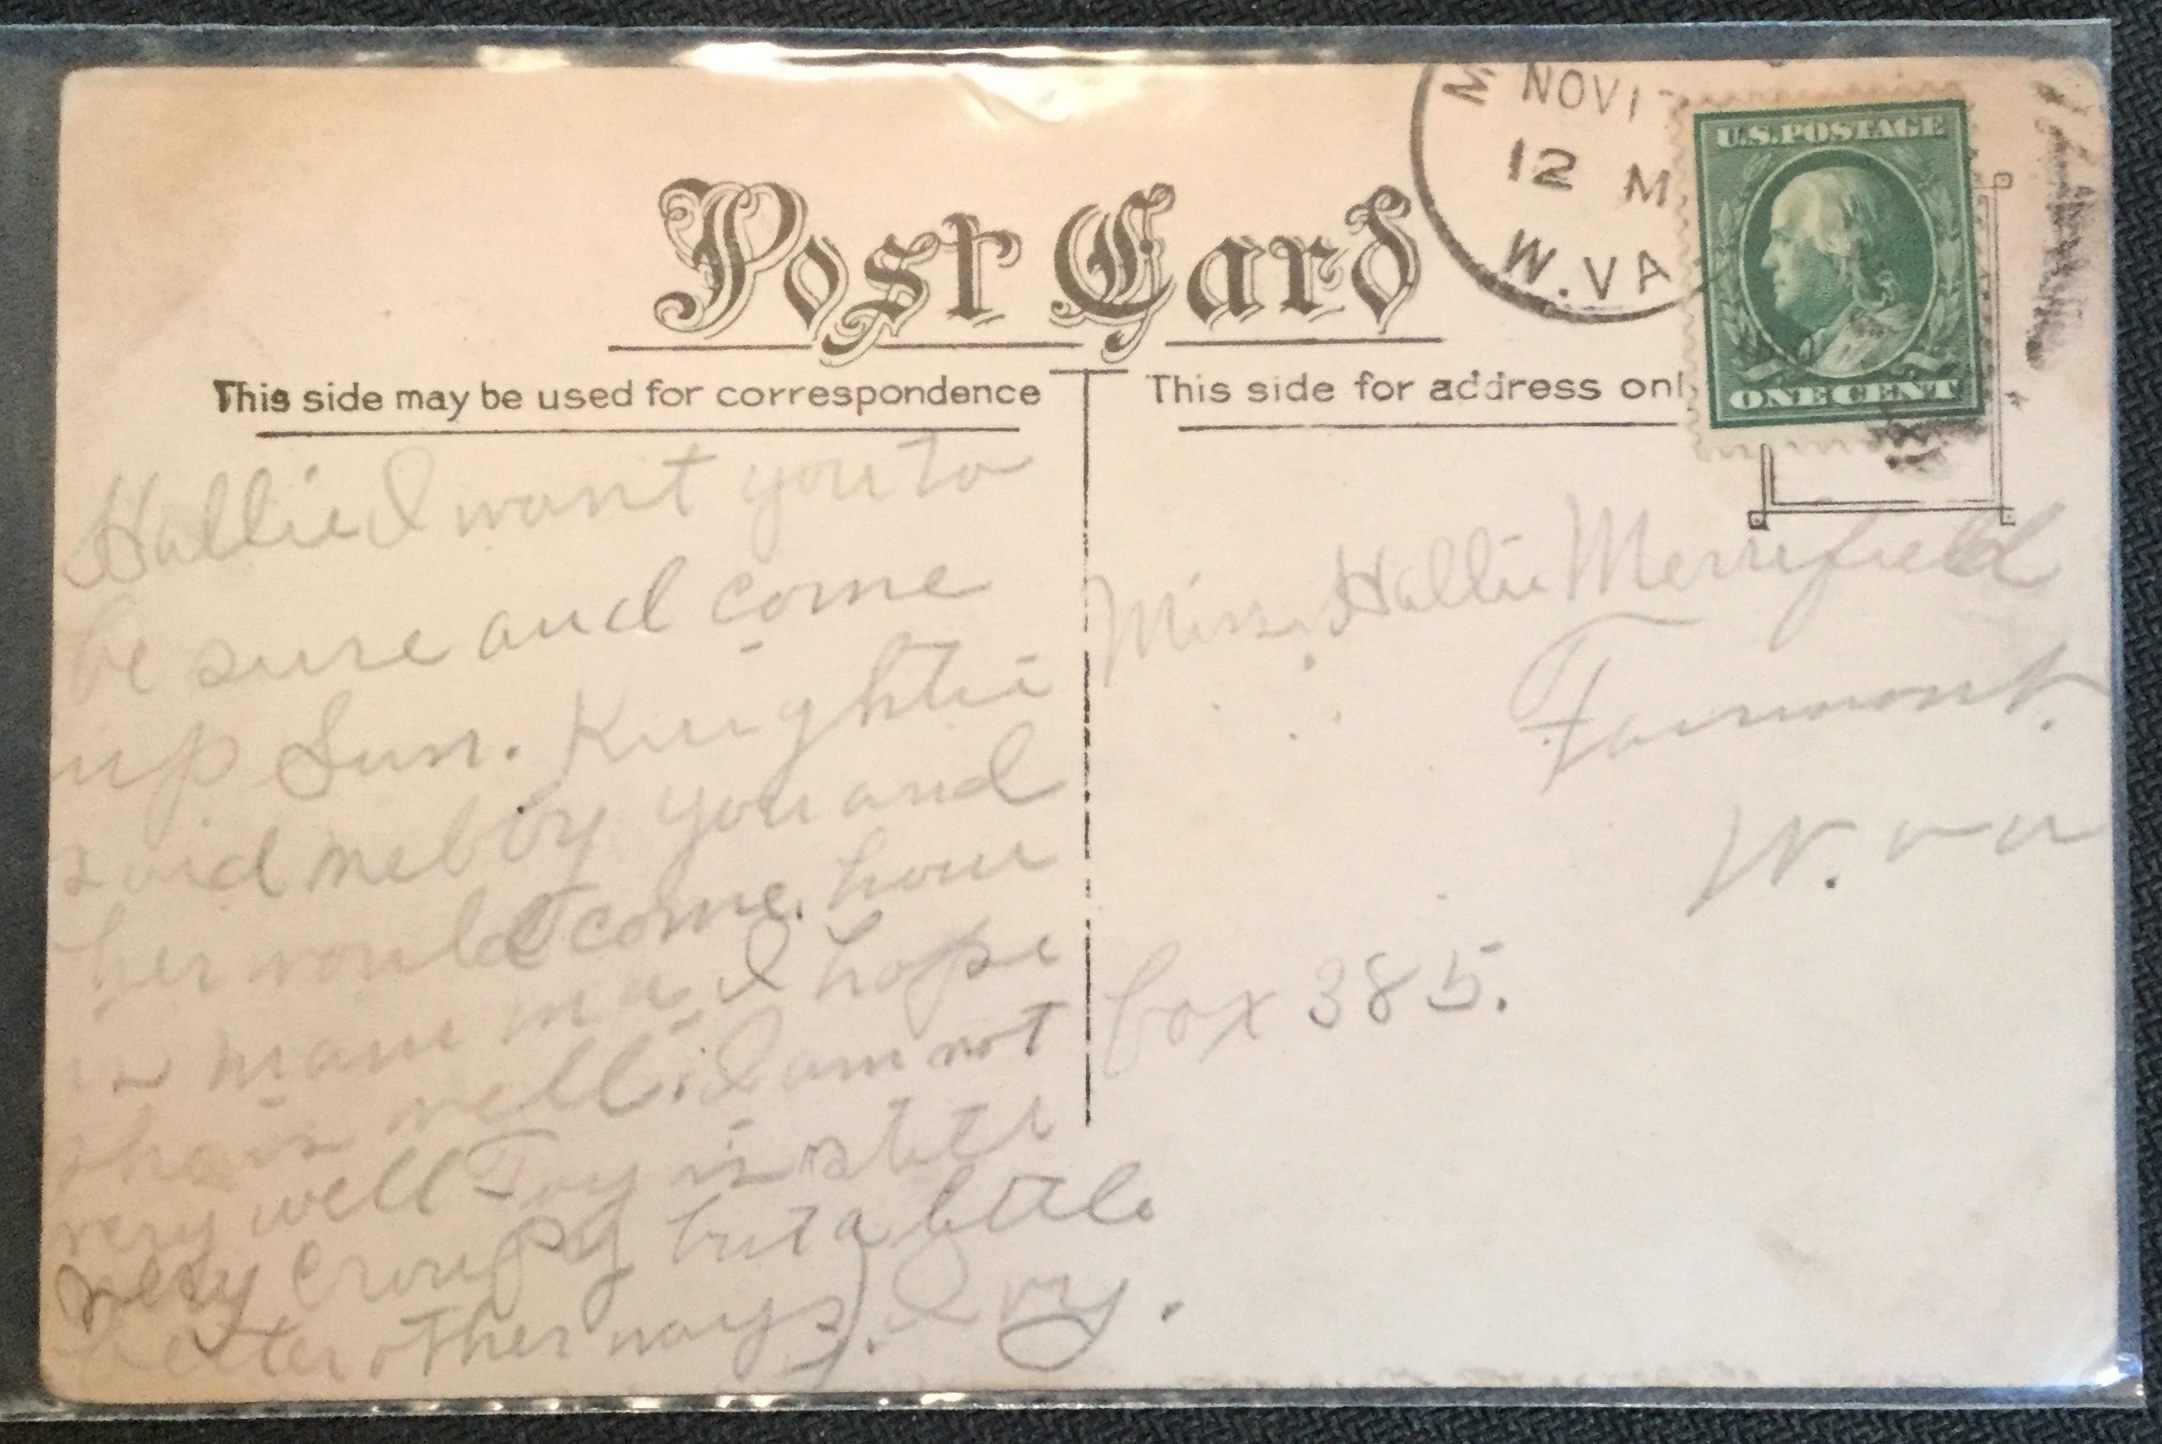 M NOV 1
12 M
W.VA
U.S. POSTAGE
ONE CENT
Post Card
This side may be used for correspondence
This side for address onl
Hallie I want you to
be sure and come
up Sun. Knightie
said mebby you and
her would come. hour
is mam ma I hope
sha is well. I am not
very well Toy is
very croupy but a little
better other ways. Ivy.
Miss. Hallie Merrifield
Fairmont.
W. va
box 385.